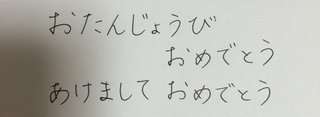 おたんじょうび
おめでとう
あけまして おめでとう